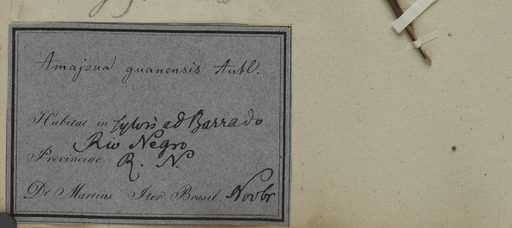 Amajoua guanensis Aubl.
Habitat in sylvis ad Barra do
Rio Negro
Provinciae R. N.
Dr Martius Iter Brasil. Novbr